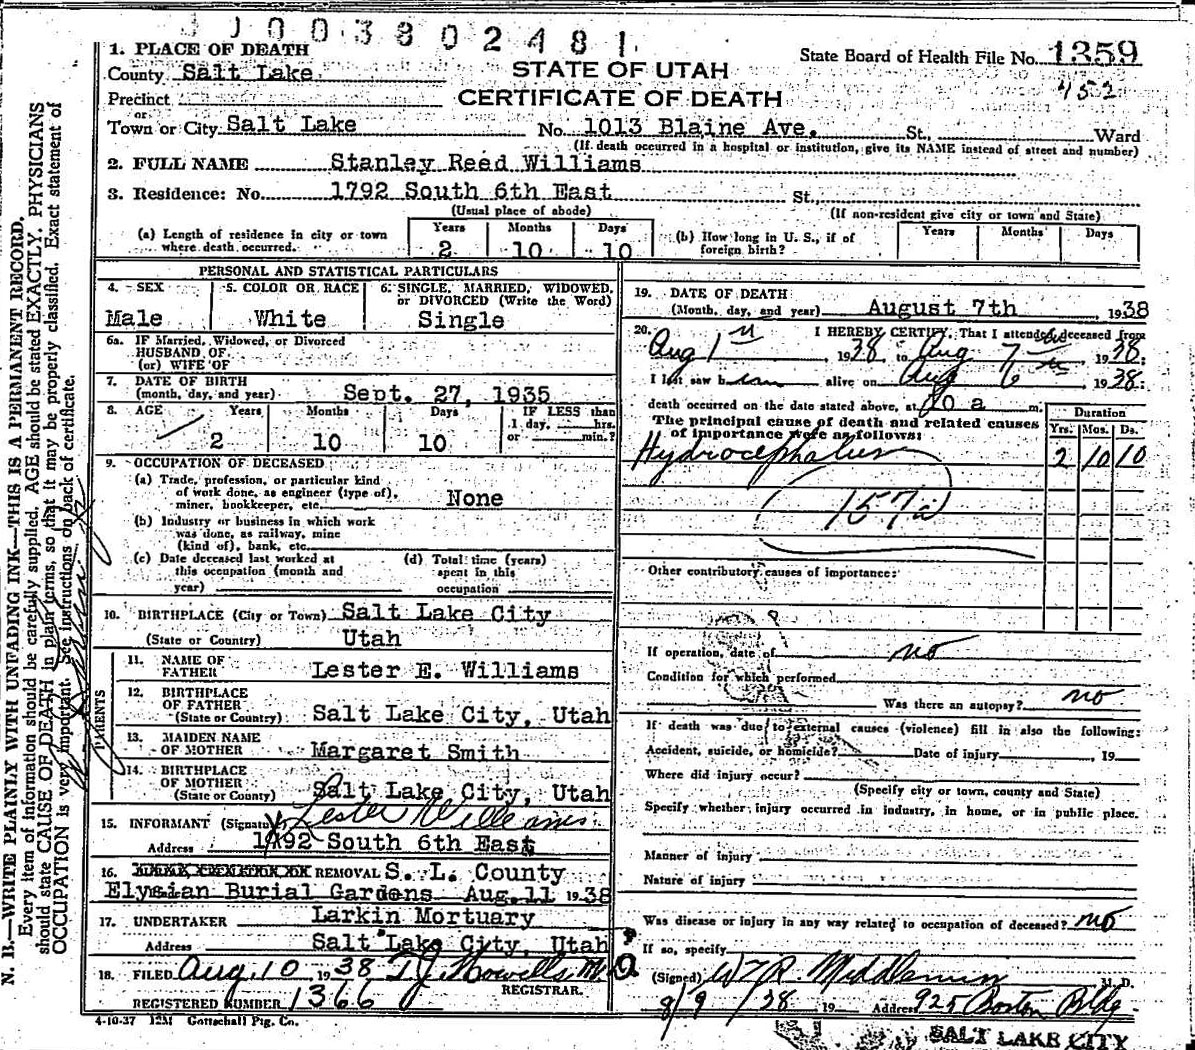 003802481
1. PLACE OF DEATH
County Salt Lake
Precinct
or
Town or City Salt Lake
STATE OF UTAH
CERTIFICATE OF DEATH
State Board of Health File No. 1359
452
No. 1013 Blaine Ave. St., Ward
(If death occurred in a hospital or institution, give its NAME instead of street and number)
2. FULL NAME Stanley Reed Williams
3. Residence: No. 1792 South 6th East St.,
(Usual place of abode) (If non-resident give city or town and State)
(a) Length of residence in city or town where death occurred. Years 2 Months 10 Days 10
(b) How long in U. S., if of foreign birth? Years Months Days
PERSONAL AND STATISTICAL PARTICULARS
4. SEX 5. COLOR OR RACE 6. SINGLE, MARRIED, WIDOWED, or DIVORCED (Write the Word)
Male White Single
6a. IF Married, Widowed, or Divorced
HUSBAND OF
(or) WIFE OF
7. DATE OF BIRTH
(month, day, and year) Sept. 27, 1935
8. AGE Years Months Days IF LESS than
1 day, hrs.
or min.?
2 10 10
9. OCCUPATION OF DECEASED
(a) Trade, profession, or particular kind
of work done, as engineer (type of),
miner, bookkeeper, etc. None
(b) Industry or business in which work
was done, as railway, mine
(kind of), bank, etc.
(c) Date deceased last worked at
this occupation (month and
year)
(d) Total time (years)
spent in this
occupation
10. BIRTHPLACE (City or Town) Salt Lake City
(State or Country) Utah
PARENTS
11. NAME OF
FATHER Lester E. Williams
12. BIRTHPLACE
OF FATHER
(State or Country) Salt Lake City, Utah
13. MAIDEN NAME
OF MOTHER Margaret Smith
14. BIRTHPLACE
OF MOTHER
(State or Country) Salt Lake City, Utah
15. INFORMANT (Signature) Lester Williams
Address 1792 South 6th East
16. REMOVAL S. L. County
Elysian Burial Gardens Aug. 11 1938
17. UNDERTAKER Larkin Mortuary
Address Salt Lake City, Utah
18. FILED Aug 10, 1938 T J Howells M.D.
REGISTRAR.
REGISTERED NUMBER 1366
4-10-37 12M Gottschall Ptg. Co.
19. DATE OF DEATH
(Month, day, and year) August 7th, 1938
20. I HEREBY CERTIFY, That I attended deceased from
Aug 1st, 1938, to Aug 7, 1938;
I last saw him alive on Aug 6, 1938;
death occurred on the date stated above, at 10 a m.
The principal cause of death and related causes
of importance were as follows:
Duration
Yrs. Mos. Ds.
Hydrocephalus 2 10 10
157a
Other contributory causes of importance:
If operation, date of no
Condition for which performed
Was there an autopsy? no
If death was due to external causes (violence) fill in also the following:
Accident, suicide, or homicide? Date of injury, 19
Where did injury occur?
(Specify city or town, county and State)
Specify whether injury occurred in industry, in home, or in public place.
Manner of injury
Nature of injury
Was disease or injury in any way related to occupation of deceased? no
If so, specify
(Signed) M.D.
8/9/38 19 Address 925 Boston Bldg
SALT LAKE CITY
N. B.—WRITE PLAINLY WITH UNFADING INK—THIS IS A PERMANENT RECORD.
Every item of information should be carefully supplied. AGE should be stated EXACTLY. PHYSICIANS
should state CAUSE OF DEATH in plain terms, so that it may be properly classified. Exact statement of
OCCUPATION is very important. See instructions on back of certificate.